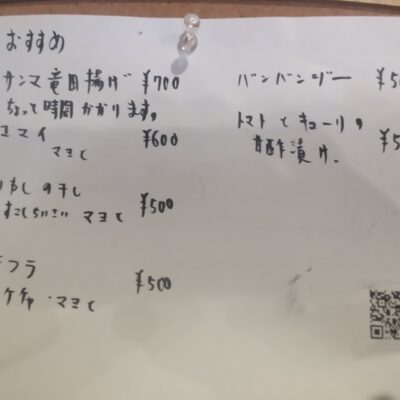 おすすめ
サンマ竜田揚げ ¥700
ちょって時間かかります。
マイ ¥600
マヨと
わしの干し
すこしちいさい マヨと ¥500
フラ
ケチャ・マヨと ¥500
バンバンジー ¥5
トマトとキューリの
甘酢漬け. ¥5